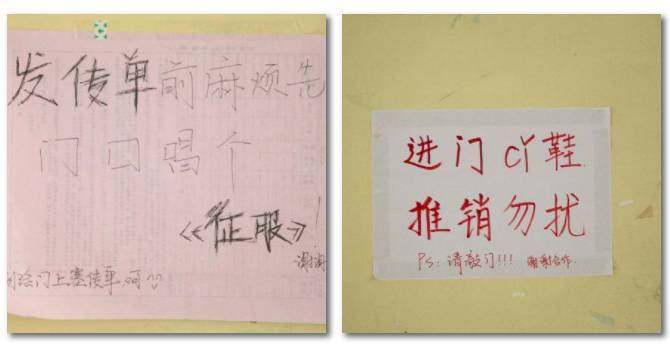 发传单前麻烦先
门口唱个
《征服》!
谢谢
别给门上塞传单,呵
进门叫鞋
推销勿扰
PS:请敲门!!! 谢谢合作